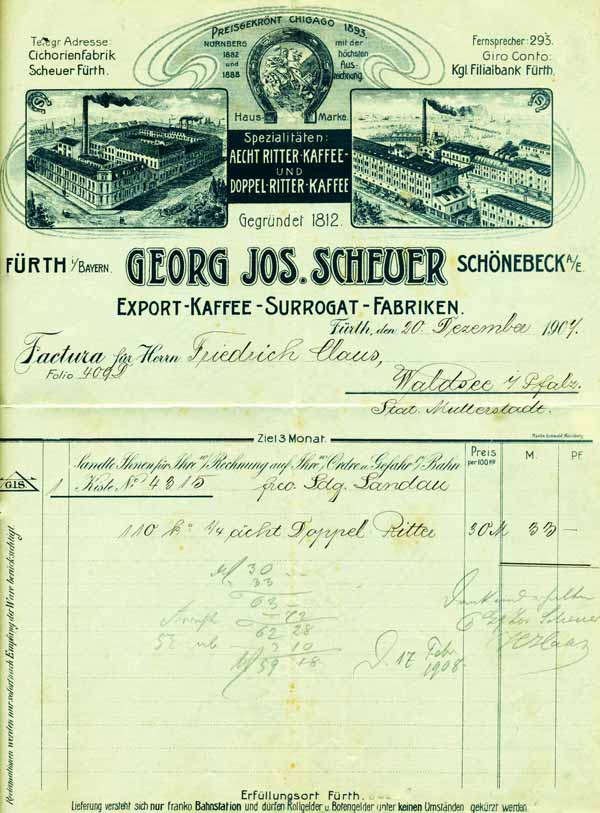 PREISGEKRÖNT CHICAGO 1893.
NÜRNBERG 1882 und 1888
mit der höchsten Auszeichnung.
Telegr Adresse:
Cichorienfabrik
Scheuer Fürth.
Fernsprecher: 293.
Giro Conto:
Kgl. Filialbank Fürth.
Haus Marke.
Spezialitäten:
AECHT RITTER-KAFFEE-
UND
DOPPEL-RITTER-KAFFEE
Gegründet 1812.
FÜRTH i/BAYERN. GEORG JOS. SCHEUER SCHÖNEBECK A/E.
EXPORT-KAFFEE-SURROGAT-FABRIKEN.
Fürth, den 20. Dezember 1907.
Factura für Herrn Friedrich Claus,
Folio 409
Waldsee i/Pfalz.
Stat. Mutterstadt.
Ziel 3 Monat.
Sandte Ihnen für Ihre Rechnung auf Ihre Ordre u. Gefahr Bahn
Preis per 100 Ko M. Pf.
GIS 1 Kiste No 4315 frco. Ldg. Landau
110 ko 1/4 ächt Doppel Ritter 30 M 33 —
M 30
33
63
62 28
3 10
M 59 18
D. 17 Febr
1908
Scheuer
Reclamationen werden nur sofort nach Empfang der Ware berücksichtigt.
Erfüllungsort Fürth.
Lieferung versteht sich nur franko Bahnstation und dürfen Rollgelder u. Botengelder unter keinen Umständen gekürzt werden.